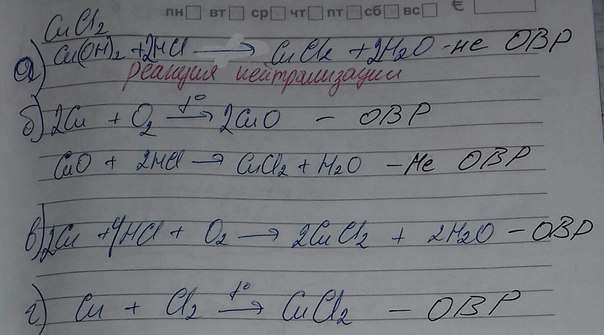 пн вт ср чт пт сб вс €
CuCl2
а) Cu(OH)2 + 2HCl ⟶ CuCl2 + 2H2O - не ОВР
реакция нейтрализации
б) 2Cu + O2 t°⟶ 2CuO - ОВР
CuO + 2HCl ⟶ CuCl2 + H2O - не ОВР
в) 2Cu + 4HCl + O2 ⟶ 2CuCl2 + 2H2O - ОВР
г) Cu + Cl2 t°⟶ CuCl2 - ОВР